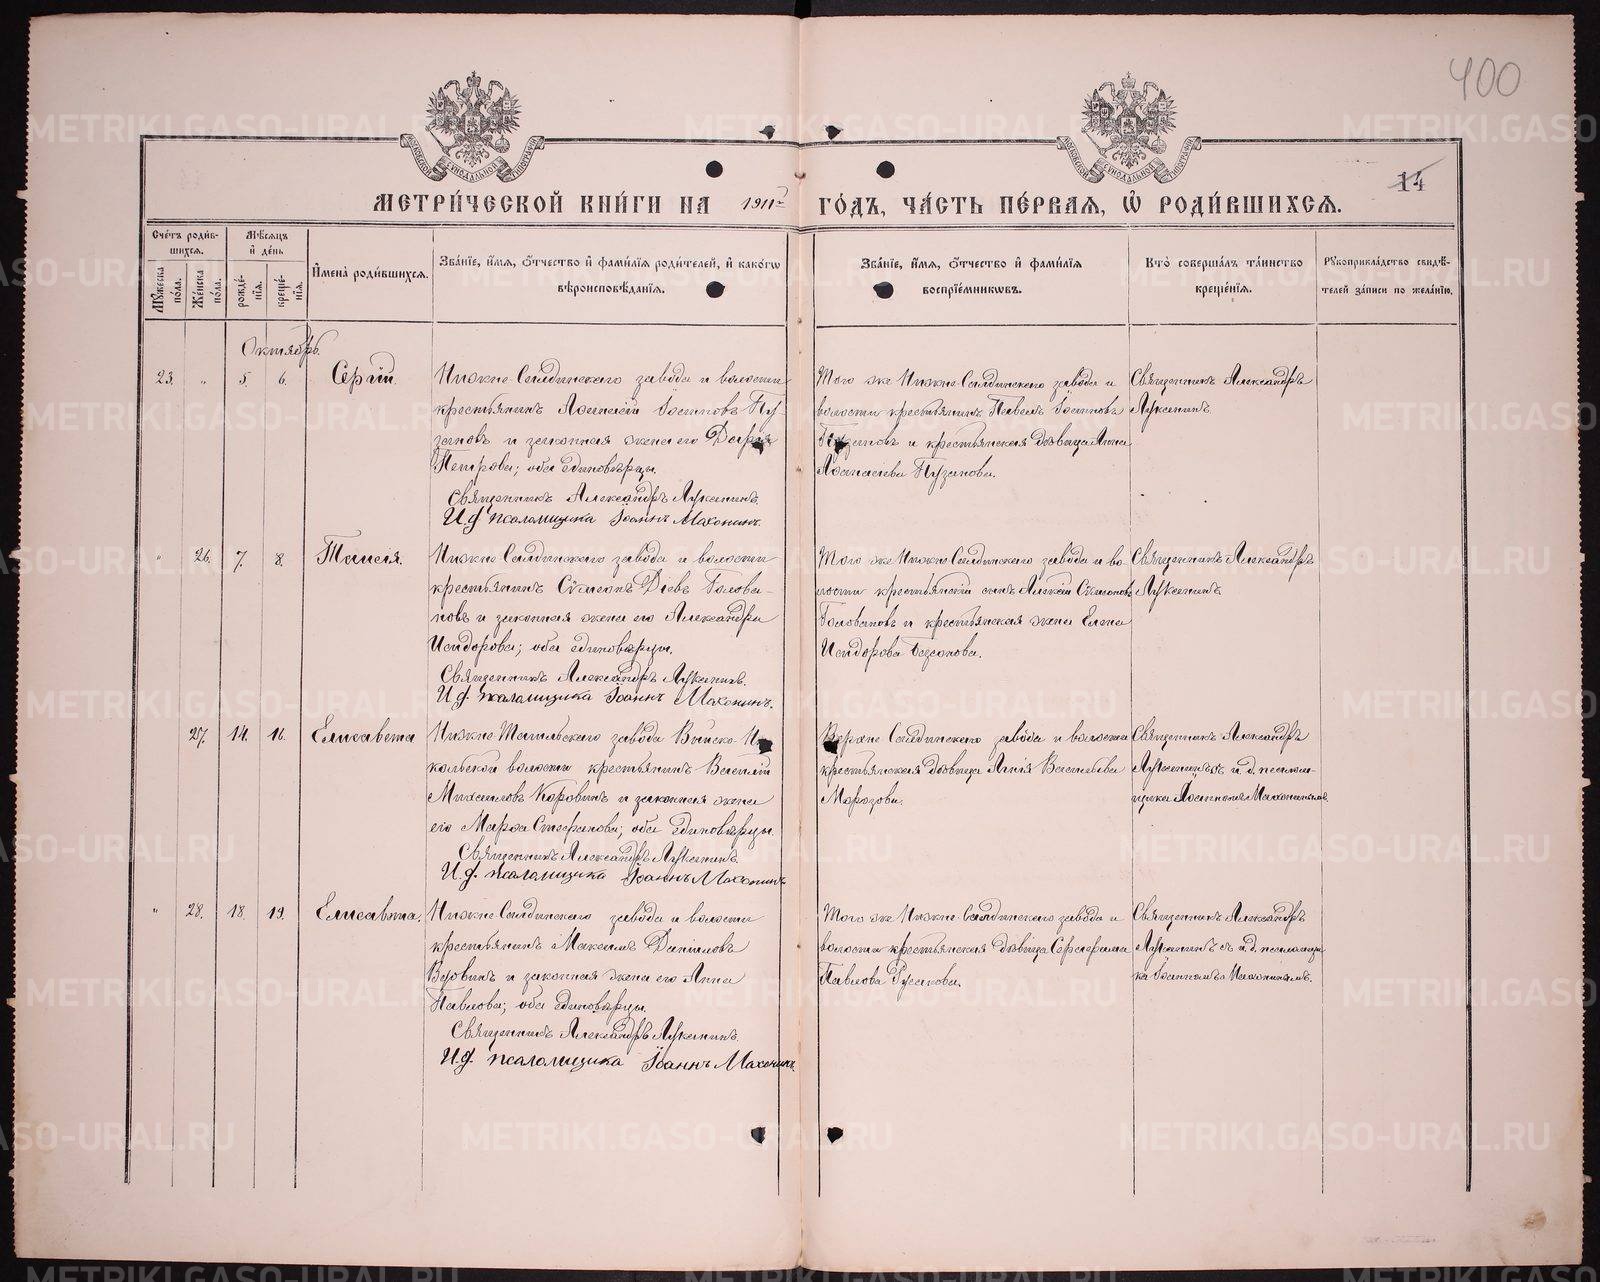 400
14
МЕТРИ́ЧЕСКОЙ КНИ́ГИ НА 1911 ГО́ДЪ, ЧА́СТЬ ПЕ́РВАЯ, Ѡ҆ РОДИ́ВШИХСЯ.
Сче́тъ роди́в-
шихся.
Мѣ́сяцъ
и҆ де́нь
Му́жеска
по́ла.
Же́нска
по́ла.
рожде́-
нїя.
креще́-
нїя.
И҆мена̀ роди́вшихся.
Зва́нїе, и҆́мя, ѻ҆́тчество и҆ фами́лїя роди́телей, и҆ како́гѡ
вѣроисповѣ́данїя.
Зва́нїе, и҆́мя, ѻ҆́тчество и҆ фами́лїя
воспрїе́мникѡвъ.
Кто̀ соверша́лъ та́инство
креще́нїя.
Рꙋкоприкла́дство свидѣ́-
телей за́писи по жела́нїю.
Октябрь.
23. „ 5. 6. Сергій.
Нижне-Салдинскаго завода и волости
крестьянинъ Аѳанасій Іосиповъ Пу-
зановъ и законная жена его Дарія
Петрова; оба единовѣрцы.
Священникъ Александръ Лукинъ.
И.д. псаломщика Іоаннъ Махонинъ.
Того же Нижне-Салдинскаго завода и
волости крестьянинъ Павелъ Іосиповъ
Пузановъ и крестьянская дѣвица Анна
Аѳанасіева Пузанова.
Священникъ Александръ
Лукинъ.
„ 26. 7. 8. Таисія.
Нижне-Салдинскаго завода и волости
крестьянинъ Сѵмеонъ Діевъ Голова-
новъ и законная жена его Александра
Исидорова; оба единовѣрцы.
Священникъ Александръ Лукинъ.
И.д. псаломщика Іоаннъ Махонинъ.
Того же Нижне-Салдинскаго завода и во
лости крестьянскій сынъ Алексій Сѵмеоновъ
Головановъ и крестьянская жена Елена
Исидорова
Священникъ Александръ
Лукинъ
27. 14. 16. Елисавета
Нижне-Тагильскаго завода Выйско-Ни
кольской волости крестьянинъ Василій
Михаиловъ Коровинъ и законная жена
его Марѳа Стефанова; оба единовѣрцы.
Священникъ Александръ Лукинъ.
И.д. псаломщика Іоаннъ Махонинъ
Верхне-Салдинскаго завода и волости
крестьянская дѣвица Васильева
Морозова.
Священникъ Александръ
Лукинъ съ и.д. псалом-
щика Іоанномъ Махонинымъ.
„ 28. 18. 19. Елисавета.
Нижне-Салдинскаго завода и волости
крестьянинъ Максимъ Даніиловъ
и законная жена его Анна
Павлова; оба единовѣрцы.
Священникъ Александръ Лукинъ.
И.д. псаломщика Іоаннъ Махонинъ.
Того же Нижне-Салдинскаго завода и
волости крестьянская дѣвица Серафима
Павлова Русакова.
Священникъ Александръ
Лукинъ съ и.д. псаломщи
ка Іоанномъ Махонинымъ.
METRIKI.GASO-URAL.RU